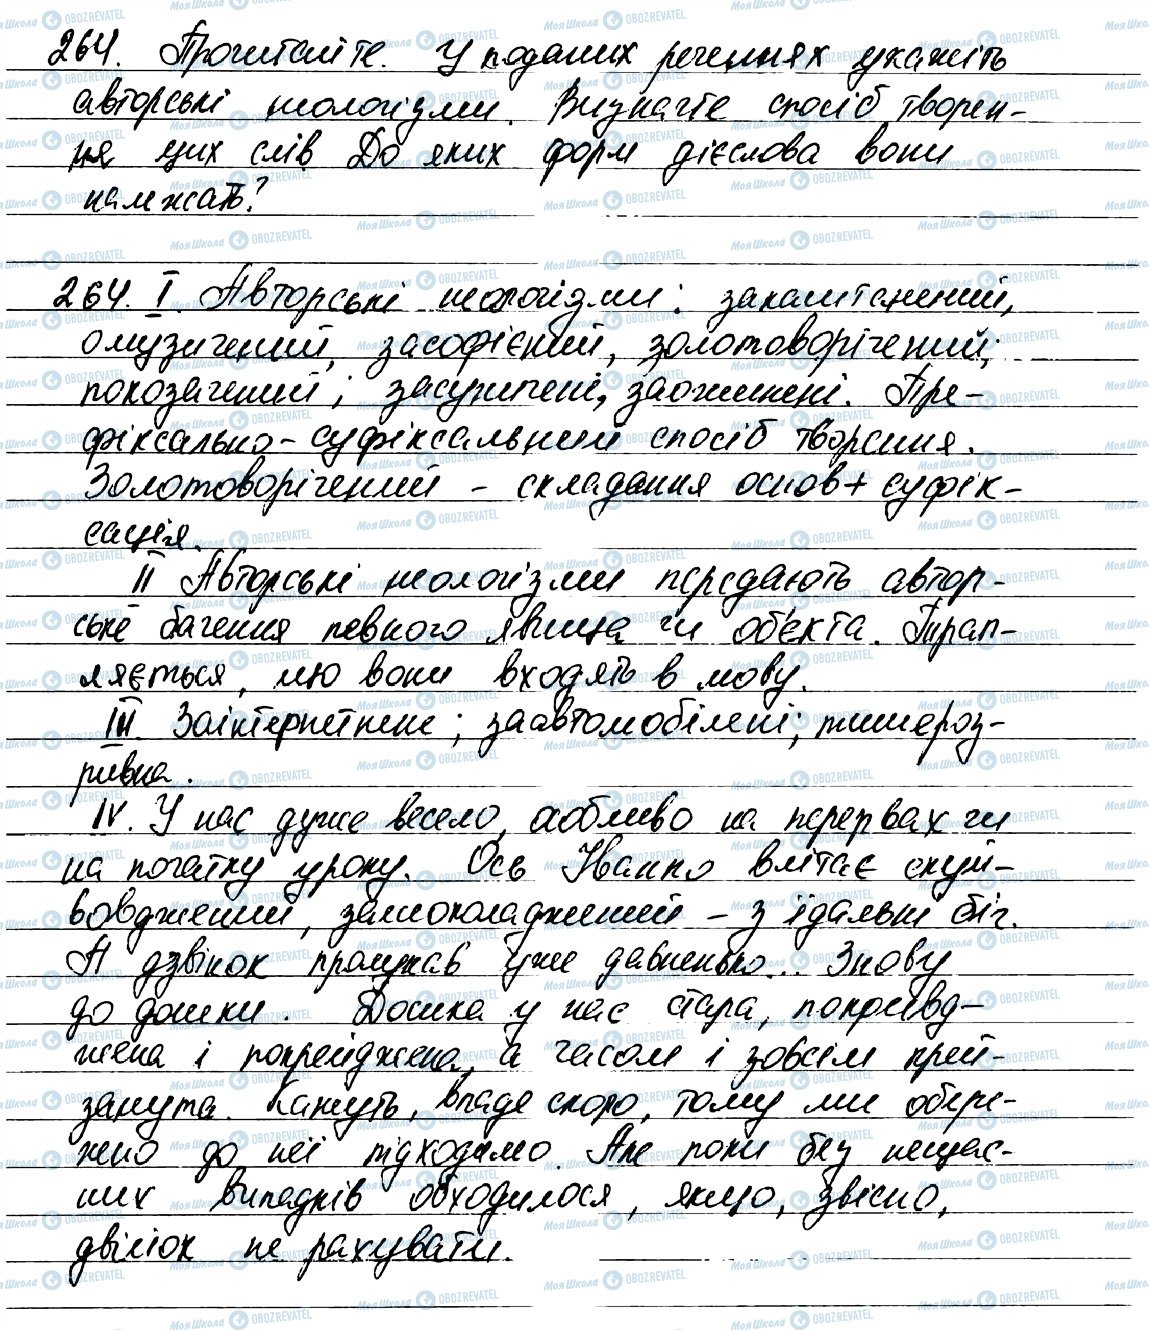 264. Прочитайте. У поданих реченнях укажіть
авторські неологізми. Визначте спосіб творен-
ня цих слів До яких форм дієслова вони
належать?
264. I. Авторські неологізми: закаштанений,
омузичений, засофієний, золотоворічений;
покозачений; засуничені, заожинені. Пре-
фіксально-суфіксальний спосіб творення.
Золотоворічений - складання основ + суфік-
сація.
II Авторські неологізми передають автор-
ське бачення певного явища чи об'єкта. Трап-
ляється, що вони входять в мову.
III. Заінтернетнене; заавтомобілені; тишероз-
ривна.
IV. У нас дуже весело, особливо на перервах чи
на початку уроку. Ось Іванко влітає скуй-
вовджений, зашоколаджений - з їдальні біг.
А дзвінок пролунав уже давненько... Знову
до дошки. Дошка у нас стара, покривд-
жена і покрейджена, а часом і зовсім крей-
занута. Кажуть, впаде скоро, тому ми обере-
жно до неї підходимо. Але поки без нещас-
них випадків обходилося, якщо, звісно,
двійок не рахувати.